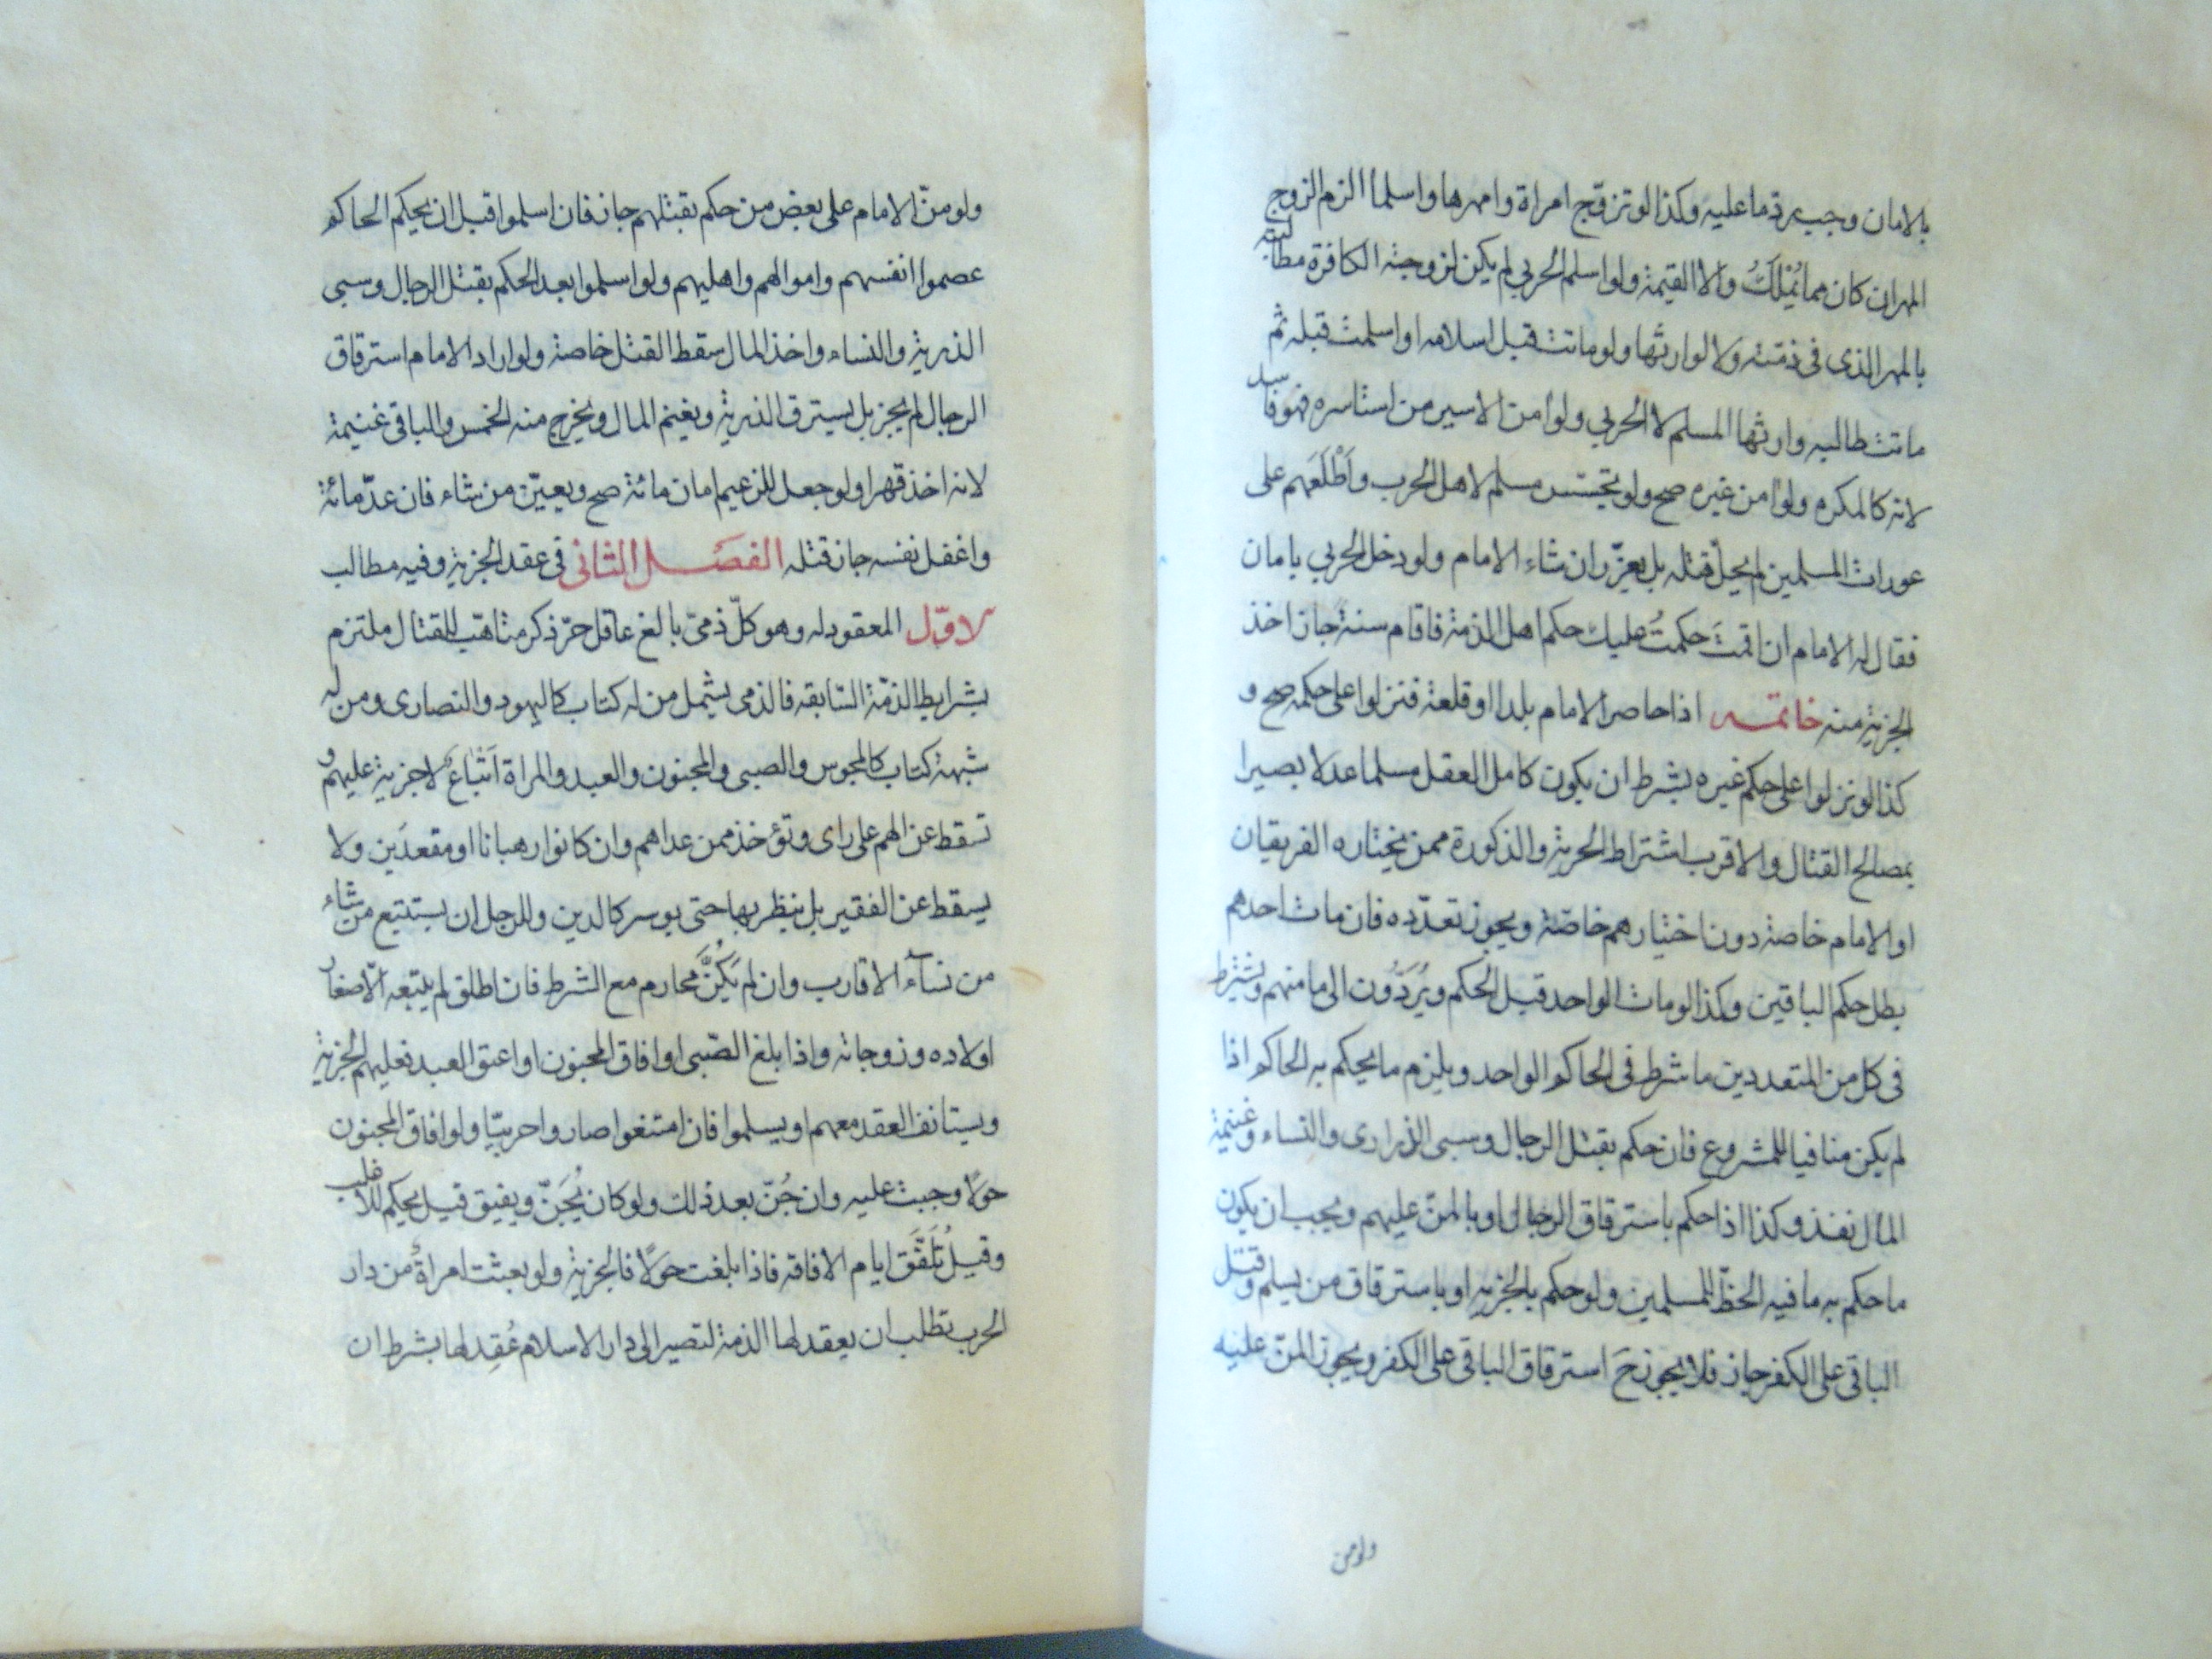 بالامان وجب رد ما عليه وكذا لو تزوج امراة وامهرها واسلما الزم الزوج
المهر ان كان مما يُمْلَكُ والا القيمة ولو اسلم الحربي لم يكن لزوجته الكافرة مطالبته
بالمهر الذى فى ذمته ولا لوارثها ولو ماتت قبل اسلامه او اسلمت قبله ثم
ماتت طالبه وارثها المسلم لا الحربي ولو امن الاسير من استاسره فهو فاسد
لانه كالمكره ولو امن غيره صح ولو تجسّس مسلم لاهل الحرب وَاَطْلَعَهم على
عورات المسلمين لم يحلّ قتله بل يعزّر ان شاء الامام ولو دخل الحربي بامان
فقال له الامام ان اقمتَ حكمتُ عليك حكم اهل الذمة فاقام سنة جاز اخذ
الجزية منه خاتمه اذا حاصر الامام بلدا او قلعة فنزلوا على حكمه صح و
كذا لو نزلوا على حكم غيره بشرط ان يكون كامل العقل مسلما عدلا بصيرا
بمصالح القتال والاقرب اشتراط الحرية والذكورة ممن يختاره الفريقان
او الامام خاصة دون اختيارهم خاصّة ويجوز تعدّده فان مات احدهم
بطل حكم الباقين وكذا لو مات الواحد قبل الحكم ويُرَدُّون الى مامنهم ويشترط
فى كل من المتعددين ما شرط فى الحاكم الواحد ويلزم ما يحكم به الحاكم اذا
لم يكن منافيا للمشروع فان حكم بقتل الرجال وسبى الذرارى والنساء وغنيمة
المال نفذ وكذا اذا حكم باسترقاق الرجال او بالمنّ عليهم ويجب ان يكون
ما حكم به ما فيه الحظّ للمسلمين ولو حكم بالجزية او باسترقاق من يسلم وقتل
الباقى على الكفر جاز فلا يجوز حَ استرقاق الباقى على الكفر ويجوز المنّ عليه
ولو من
ولو منّ الامام على بعض من حكم بقتلهم جاز فان اسلموا قبل ان يحكم الحاكم
عصموا انفسهم واموالهم واهليهم ولو اسلموا بعد الحكم بقتل الرجال وسبى
الذرية والنساء واخذ المال سقط القتل خاصة ولو اراد الامام استرقاق
الرجال لم يجز بل يسترق الذرية ويغنم المال ويخرج منه الخمس والباقى غنيمة
لانه اخذ قهرا ولو جعل للزعيم امان مائة صح ويعيّن من شاء فان عدّ مائة
واغفل نفسه جاز قتله الفصل الثانى فى عقد الجزية وفيه مطالب
الاوّل المعقود له وهو كلّ ذمىّ بالغ عاقل حرّ ذكر متاهّب للقتال ملتزم
بشرايط الذمّة السّابقه فالذمى يشمل من له كتاب كاليهود والنصارى ومن له
شبهة كتاب كالمجوس والصبى والمجنون والعبد والمراة اَتْباعٌ لا جزية عليهم و
تسقط عن الهم على راى وتؤخذ ممن عداهم وان كانوا رهبانا او مقعدَين ولا
يسقط عن الفقير بل ينظر بها حتى يوسر كالدين وللرجل ان يستتبع من شاء
من نسآء الاقارب وان لم يَكُنَّ محارم مع الشرط فان اطلق لم يتبعه الّا صغار
اولاده وزوجاته واذا بلغ الصّبى او افاق المجنون او اعتق العبد فعليهم الجزية
ويستانف العقد معهم او يسلموا فان امتنعوا صاروا حربيّا ولو افاق المجنون
حولا وجبت عليه وان جُنّ بعد ذلك ولو كان يُجَنّ ويفيق قيل يحكم للاغلب
وقيل تُلَفَّق ايام الافاقه فاذا بلغت حولًا فالجزية ولو بعثت امراةٌ من دار
الحرب تطلب ان يعقد لها الذمة لتصير الى دار الاسلام عُقِد لها بشرط ان